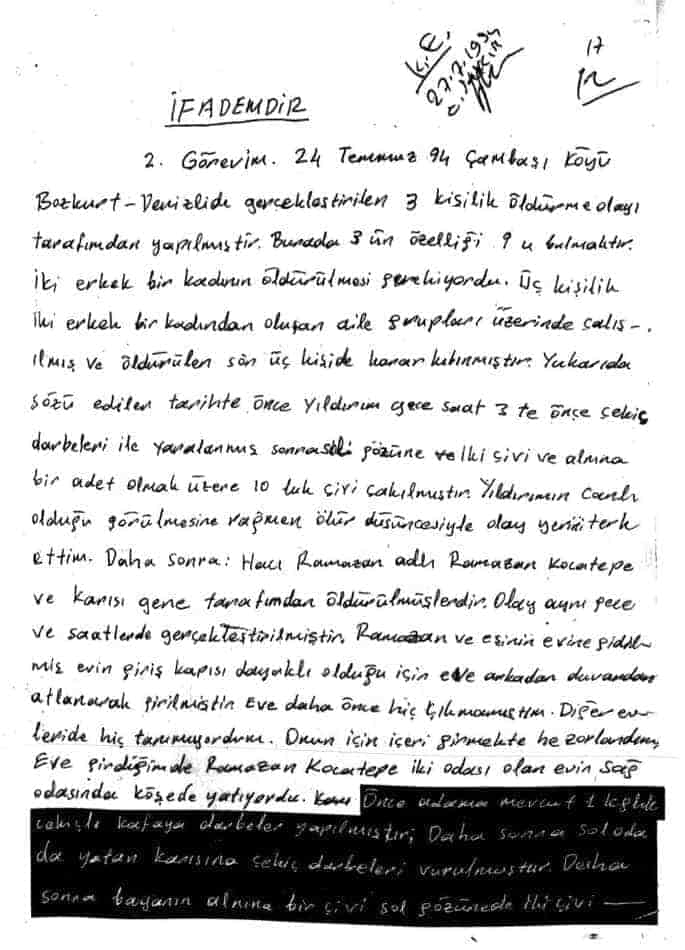 K.E.
27.7.1994
17
İFADEMDİR
2. Görevim. 24 Temmuz 94 Çambaşı Köyü
Bozkurt-Denizlide gerçekleştirilen 3 kişilik öldürme olayı
tarafımdan yapılmıştır. Burada 3 ün özelliği 9 u bulmaktır.
İki erkek bir kadının öldürülmesi gerekiyordu. Üç kişilik
iki erkek bir kadından oluşan aile grupları üzerinde çalış-
ılmış ve öldürülen son üç kişide karar kılınmıştır. Yukarıda
sözü edilen tarihte önce Yıldırım gece saat 3 te önce çekiç
darbeleri ile yaralanmış sonra gözüne iki çivi ve alnına
bir adet olmak üzere 10 luk çivi çakılmıştır. Yıldırımın canlı
olduğu görülmesine rağmen ölür düşüncesiyle olay yerini terk
ettim. Daha sonra: Hacı Ramazan adlı Ramazan Kocatepe
ve karısı gene tarafımdan öldürülmüşlerdir. Olay aynı gece
ve saatlerde gerçekleştirilmiştir. Ramazan ve eşinin evine gidil-
miş evin giriş kapısı dayaklı olduğu için eve arkadan duvardan
atlanarak girilmiştir Eve daha önce hiç çıkmamıştım. Diğer ev-
leride hiç tanımıyordum. Onun için içeri girmekte hep zorlandım,
Eve girdiğimde Ramazan Kocatepe iki odası olan evin sağ
odasında köşede yatıyordu. Önce adama mevcut 1 kğlık
çekiçle kafaya darbeler yapılmıştır, Daha sonra sol oda
da yatan karısına çekiç darbeleri vurulmuştur. Daha
sonra bayanın alnına bir çivi sol gözünede iki çivi —